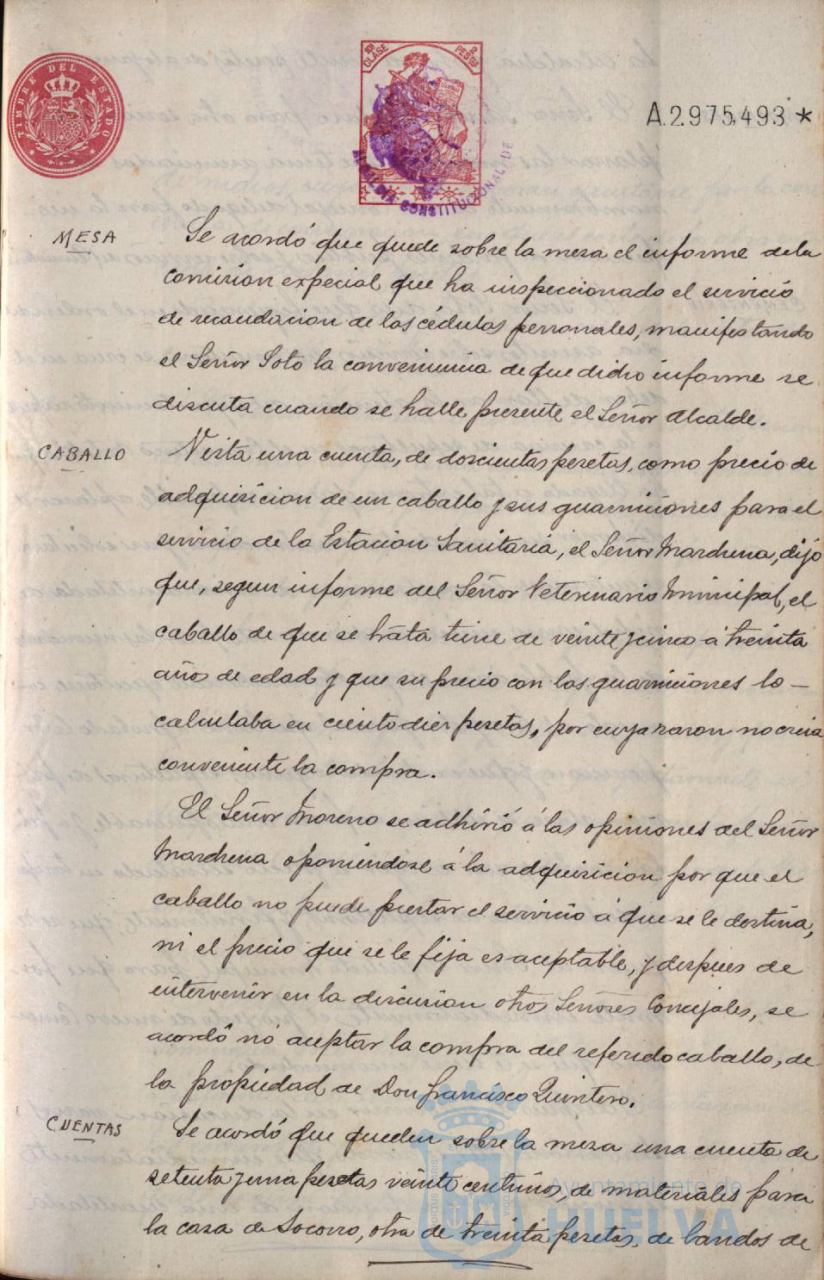 TIMBRE DEL ESTADO
10ª CLASE
2 PESETAS
ALCALDIA CONSTITUCIONAL DE
A.2.975,493 *
MESA
Se acordó que quede sobre la mesa el informe dela
comision especial que ha inspeccionado el servicio
de recaudacion de las cédulas personales, manifestando
el Señor Soto la conveniencia de que dicho informe se
discuta cuando se halle presente el Señor Alcalde.
CABALLO
Vista una cuenta, de doscientas pesetas, como precio de
adquisicion de un caballo y sus guarniciones para el
servicio de la Estacion Sanitaria, el Señor Marchena, dijo
que, segun informe del Señor Veterinario Municipal, el
caballo de que se trata tiene de veinte y cinco á treinta
años de edad y que su precio con las guarniciones lo
calculaba en ciento diez pesetas, por cuya razon no creia
conveniente la compra.
El Señor Moreno se adhirió á las opiniones del Señor
Marchena oponiéndose á la adquisicion por que el
caballo no puede prestar el servicio á que se le destina,
ni el precio que se le fija es aceptable, y despues de
intervenir en la discusion otros Señores Concejales, se
acordó no aceptar la compra del referido caballo, de
la propiedad de Don Francisco Quintero.
CUENTAS
Se acordó que queden sobre la mesa una cuenta de
setenta y una pesetas veinte centimos, de materiales para
la casa de Socorro, otra de treinta pesetas, de bandos de
Ayuntamiento de
HUELVA